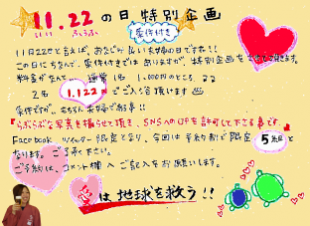 11.22の日 特別企画
いい ふうふ 条件付き
11月22日と言えば、おなじみ いい夫婦の日ですね!!
この日にちなんで、条件付きではありますが、特別企画を
料金がなんと 通常 1名 1,000円のところ、
2名 1,122 でご入浴頂けます
条件ですが、もちろん夫婦で
「らぶらぶな写真を撮らせて頂き、SNSへのUPを許可して下さる事」です
Facebook ツイッター 限定となり、今回は予約制で限定 5組と
なります。ご了承下さい。
ご予約は、コメント欄へご記入をお願いします。
愛は地球を救う!!